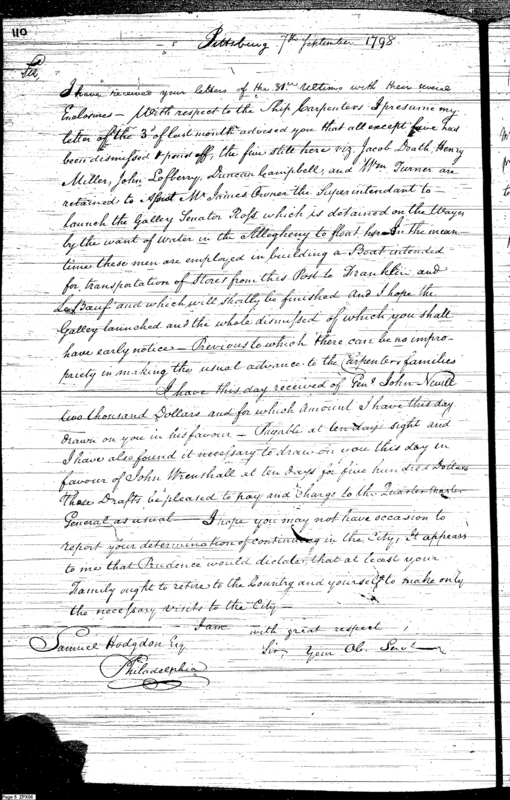 110
Pittsburg 7th September 1798
Sir
I have received your letters of the 31st Ultimo with their several
Enclosures — With respect to the Ship Carpenters I presume my
letter of the 3d of last month advised you that all except five had
been dismissed & paid off, the five still here viz, Jacob Death, Henry
Miller, John Lofberry, Duncan Campbell, and Wm Turner are
retained to Assist Mr James Owner the Superintendant to
launch the Galley Senator Ross which is detained on the Wayes
by the want of water in the Allegheny to float her — In the mean
time these men are employed in building a Boat intended
for transportation of Stores from this Post to Franklin and
LeBeauf and which will shortly be finished And I hope the
Galley launched and the whole dismissed of which you shall
have early notice — Previous to which there can be no impro-
priety in making the usual advance to the Carpenters families
I have this day received of Genl John Nevill
two thousand Dollars and for which Amount I have this day
drawn on you in his favour — Payable at ten days sight and
I have also found it necessary to draw on you this day in
favour of John Wrenshall at ten Days for five hundred Dollars
These Drafts be pleased to pay and charge to the Quarter Master
General as usual — I hope you may not have occasion to
report your determination of continuing in the City, It appears
to me that Prudence would dictate, that at least your
Family ought to retire to the Country and yourself to make only
the necessary visits to the City —
I am with great respect
Samuel Hodgdon Esq Sir, Your Ob. Servt
Philadelphia
Page 5 ZPX06